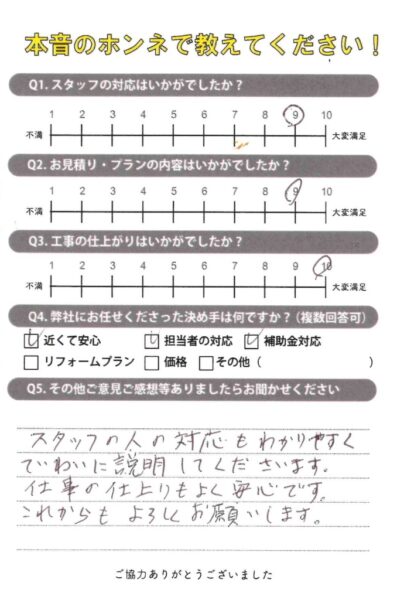 本音のホンネで教えてください！
Q1. スタッフの対応はいかがでしたか？
1 2 3 4 5 6 7 8 9 10
不満 大変満足
Q2. お見積り・プランの内容はいかがでしたか？
1 2 3 4 5 6 7 8 9 10
不満 大変満足
Q3. 工事の仕上がりはいかがでしたか？
1 2 3 4 5 6 7 8 9 10
不満 大変満足
Q4. 弊社にお任せくださった決め手は何ですか？（複数回答可）
近くて安心 担当者の対応 補助金対応
リフォームプラン 価格 その他（ ）
Q5. その他ご意見ご感想等ありましたらお聞かせください
スタッフの人の対応もわかりやすく
ていねいに説明してくださいます。
仕事の仕上りもよく安心です。
これからもよろしくお願いします。
ご協力ありがとうございました